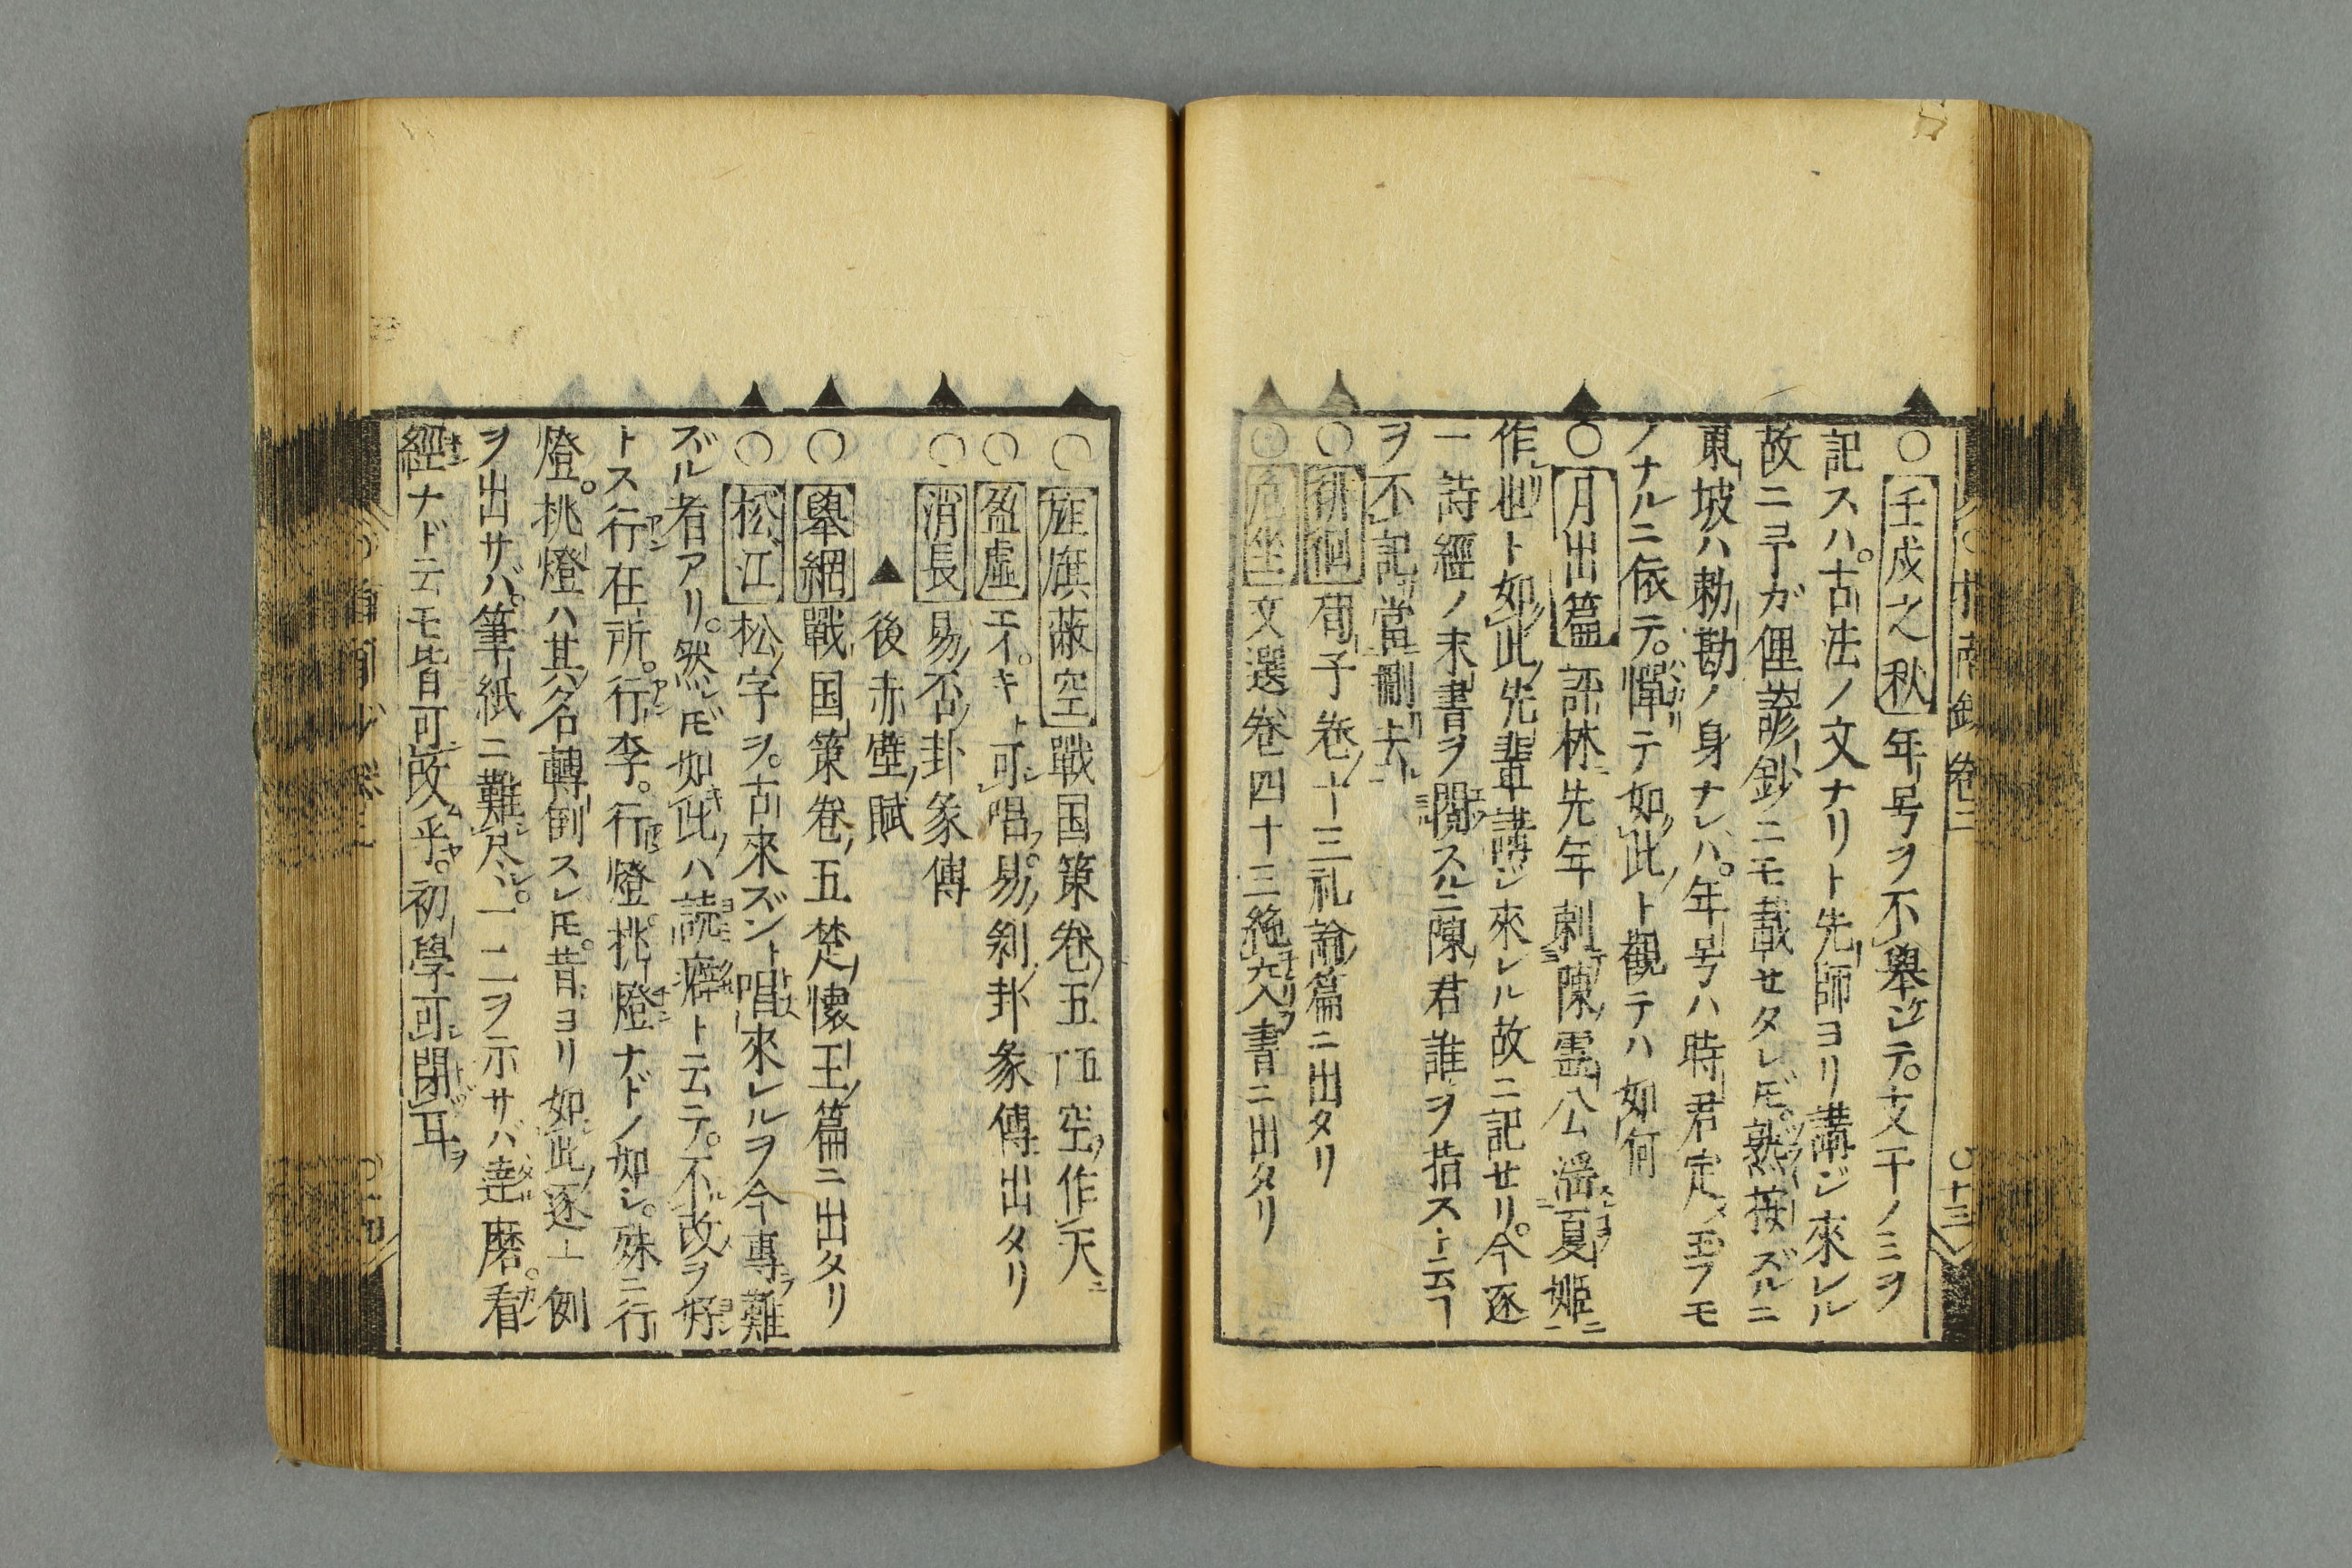 〇壬戌之秋年号ヲ不舉シテ。支干ノミヲ
記スハ。古法ノ文ナリト先師ヨリ講ジ來レル
故ニヨ甲ガ俚諺鈔ニモ載セタレ𪜈。熟按ズルニ
東坡ハ勅勘ノ身ナレバ。年号ハ時君定メ玉フモ
ノナルニ依テ。憚テ如此ト觀テハ如何
〇月出篇評林先年刺陳霊公淫夏姫
作也ト如此先輩講ジ來レル故ニ記セリ。今逐
一詩經ノ末書ヲ閲スルニ陳君誰ヲ指スト云ヿ
ヲ不記當刪去
〇徘徊荀子卷十三礼論篇ニ出タリ
〇危坐文選卷四十三絶交書ニ出タリ
〇旌旗蔽空戰国策卷五 空作天
〇盈虛エイ。キト可唱。易剝卦彖傳出タリ
〇消長易否卦彖傳
▲後赤壁賦
〇舉網戰国策卷五楚懐王篇ニ出タリ
〇松江松字ヲ。古來ズント唱來レルヲ今專難
ズル者アリ。然𪜈如此ハ読癖ト云テ。不改ヲ好
トス行在所。行李。行燈。挑燈ナドノ如シ。殊ニ行
燈。挑燈ハ其名轉倒スレ𪜈。昔ヨリ如此逐一例
ヲ出サバ。筆紙ニ難尽。一二ヲ示サバ達磨。看
經ナド云モ皆可改乎。初學可閉耳